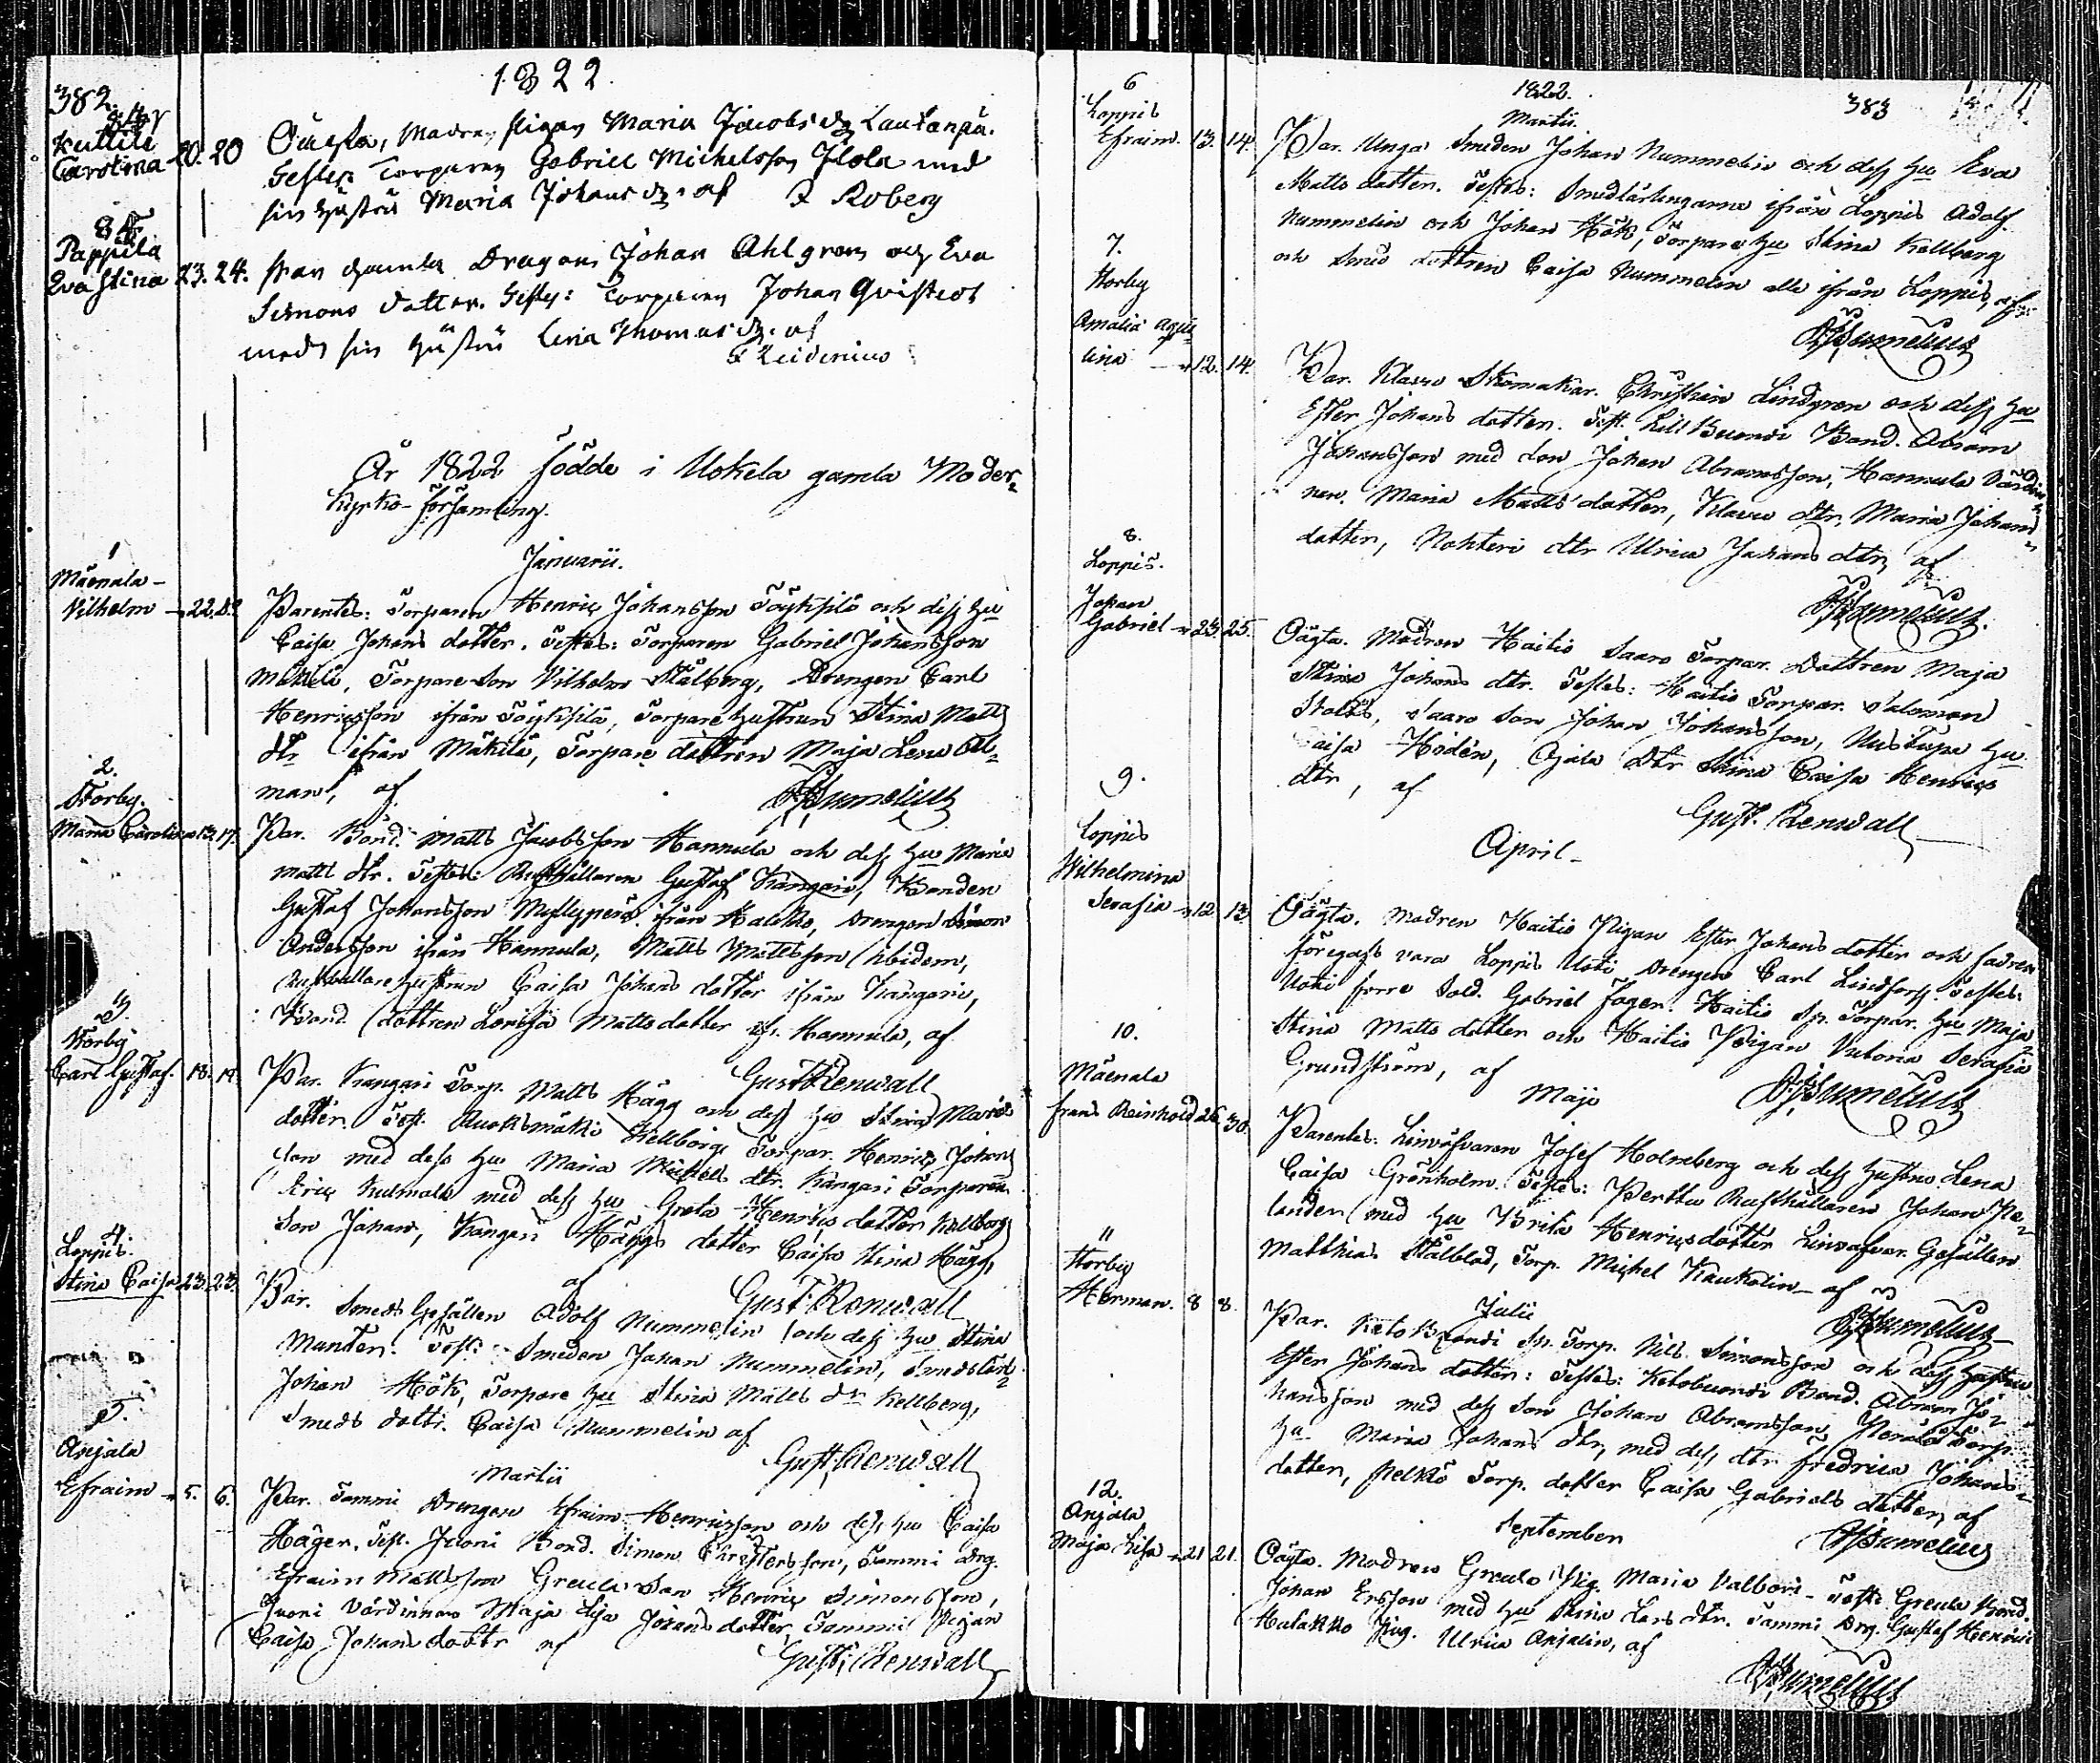 1822.
382.
84
Kuttila
Carolina 20. 20
Oäckta, Modren, pigan Maria Jacobs dr Lautanpä.
Testes Torparen Gabriel Michelsson Jlola med
sin hustru Maria Johans dr. af F Roberg
85
Pappila
Eva Stina 23. 24.
från gamla Dragon Johan Ahlgren och Eva
Simons dotter. Testes: Torparen Johan Qvistrot
med sin hustru Lena Thomas dr. af
F Reidenius
År 1822 födde i Uskela gamla Moder-
kyrko-församling.
Januarii.
1
Mäenala
Vilhelm 22.
Parentes: Torparen Henric Johansson Töykkilä och dess hu
Caisa Johans dotter. Testes: Torparen Gabriel Johansson
Mäkilä, Torpare Son Vilhelm Stålberg, Drengen Carl
Henricsson ifrån Töykkilä, Torpare hustrun Stina Matts
dtr ifrån Mäkilä, Torpare dottren Maja Lena
man, af
2.
Storby.
Maria Carolina 13. 17.
Par. Bond. Matts Jacobsson Hannula och dess hu Maria
Matts dtr. Testes: Rusthållaren Gustaf Kangari, Bonden
Gustaf Johansson Myllyperä ifrån Haukko, Drengen Simon
Andersson ifrån Hannula, Matts Mattsson ibidem,
Rusthållare hustrun Caisa Johans dotter ifrån Kangari,
Bond dottren Lovisa Matts dotter ifr. Hannula, af
Gust Renwall
3.
Storby
Carl Gustaf. 18. 19.
Par. Kangari Torp. Matts Hägg och dess hu Stina Maria
dotter. Test. Ruoksmäki Kellberg, Torpar. Henric Johans
son med dess hu Maria Michels dtr. Kangari Torparen
Eric Kulmala med dess hu Greta Henrics dotter Kellberg
Son Johan, Kangari Häggs dotter Caisa Stina Hägg,
af Gust. Renwall
4.
Loppis.
Stina Caisa 23. 23.
Par. Smeds Gesällen Adolf Nummelin och dess hu Stina
Munter. Test: Smeden Johan Nummelin, Smedslärl
Johan Hök, Torpare hu Stina Matts dr Kellberg,
Smeds dottr. Caisa Nummelin af
Gust. Renwall
Martii
5.
Anjala
Efraim 5. 6.
Par. Tammi Drengen Efraim Henricsson och dess hu Caisa
Häger. Test. Juoni Bond. Simon Christersson, Tammi Drg.
Efraim Mattsson Greula Son Henric Simonsson,
Juoni Värdinnan Maja Lisa Johans dotter, Tammi Pigan
Caisa Johans dottr af
Gust: Renwall
1822. 383
Martii.
6
Loppis
Efraim. 13. 14.
Par. Unga Smeden Johan Nummelin och dess hu Eva
Matts dotter. Testes: Smedlärlingarne ifrån Loppis Adolf
Nummelin och Johan Hök, Torpare hu Stina Kellberg
och Smed dottren Caisa Nummelin alle ifrån Loppis, af
7.
Storby
Amalia
lina 12. 14.
Par. Klavu Skomakar. Christian Lindgren och dess hu
Ester Johans dotter. Test. Lill Buondi Bond. Abram
Johansson med Son Johan Abramsson, Hannula Värdin
nan. Maria Matts dotter, Klavu dtr. Maria Johans
dotter, Nohteri dtr Ulrica Johans dtr, af
8.
Loppis.
Johan
Gabriel 23. 25.
Oägta. Modren Haitis Saaro Torpar. Dottren Maja
Stina Johans dtr. Testes: Haitis Torpar. Salomon
Stolts, Saaro Son Johan Johansson, hu
Caisa Hoden, Ojala Dtr Stina Caisa Henrics
dtr, af
Gust. Renwall
April
9.
Loppis
Wilhelmina
Serafia 12. 13.
Oägta. Modren Haitis Pigan Ester Johans dotter och fadren
föregafs vara Loppis Uoti Drengen Carl Lindfors. Testes:
Uoti förre Sold. Gabriel Fager. Haitis Sp. Torpar. hu Maja
Stina Matts dotter och Haitis Pigan Victoria Serafia
Grundström, af
Maji
10.
Mäenala
Frans Reinhold 26. 30.
Parentes: Linväfvaren Josef Holmberg och dess hustru Lena
Caisa Grönholm. Testes: Perttu Rusthållaren Johan
lander med hu Brita Henricsdotter Linväfvar. Gesällen
Matthias Stålblad, Torp. Michel Kaukolin af
Julii
11
Storby
Herman. 8 8.
Par. Keto Buondi Sp. Torp. Nils Simonsson och dess hustru
Ester Johans dotter: Testes: Ketobuondi Bond. Abram Jo-
hansson med dess Son Johan Abramsson, Torp.
hu Maria Johans dtr, med dess dtr Fredrica Johans-
dotter, Torp. dotter Caisa Gabriels dotter, af
September
12.
Anjala
Maja Lisa 21 21.
Oägta. Modren Greula Pig. Maria Valbori. Test. Greula Bond.
Johan Ersson med hu Stina Lars dtr. Tammi Drg. Gustaf Henric
Halakko Pig. Ulrica Anjalin, af